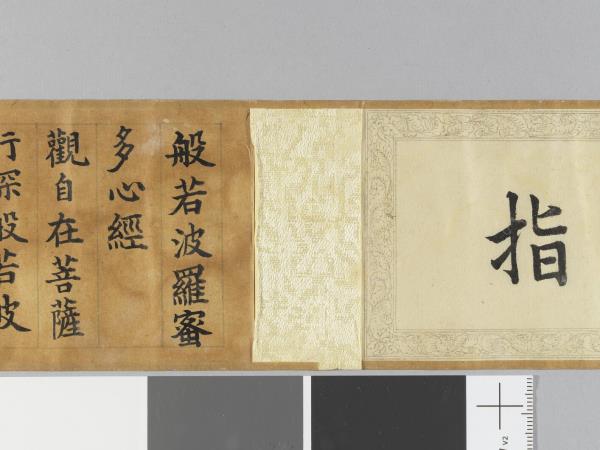 指
般若波羅蜜
多心經
觀自在菩薩
行深般若波